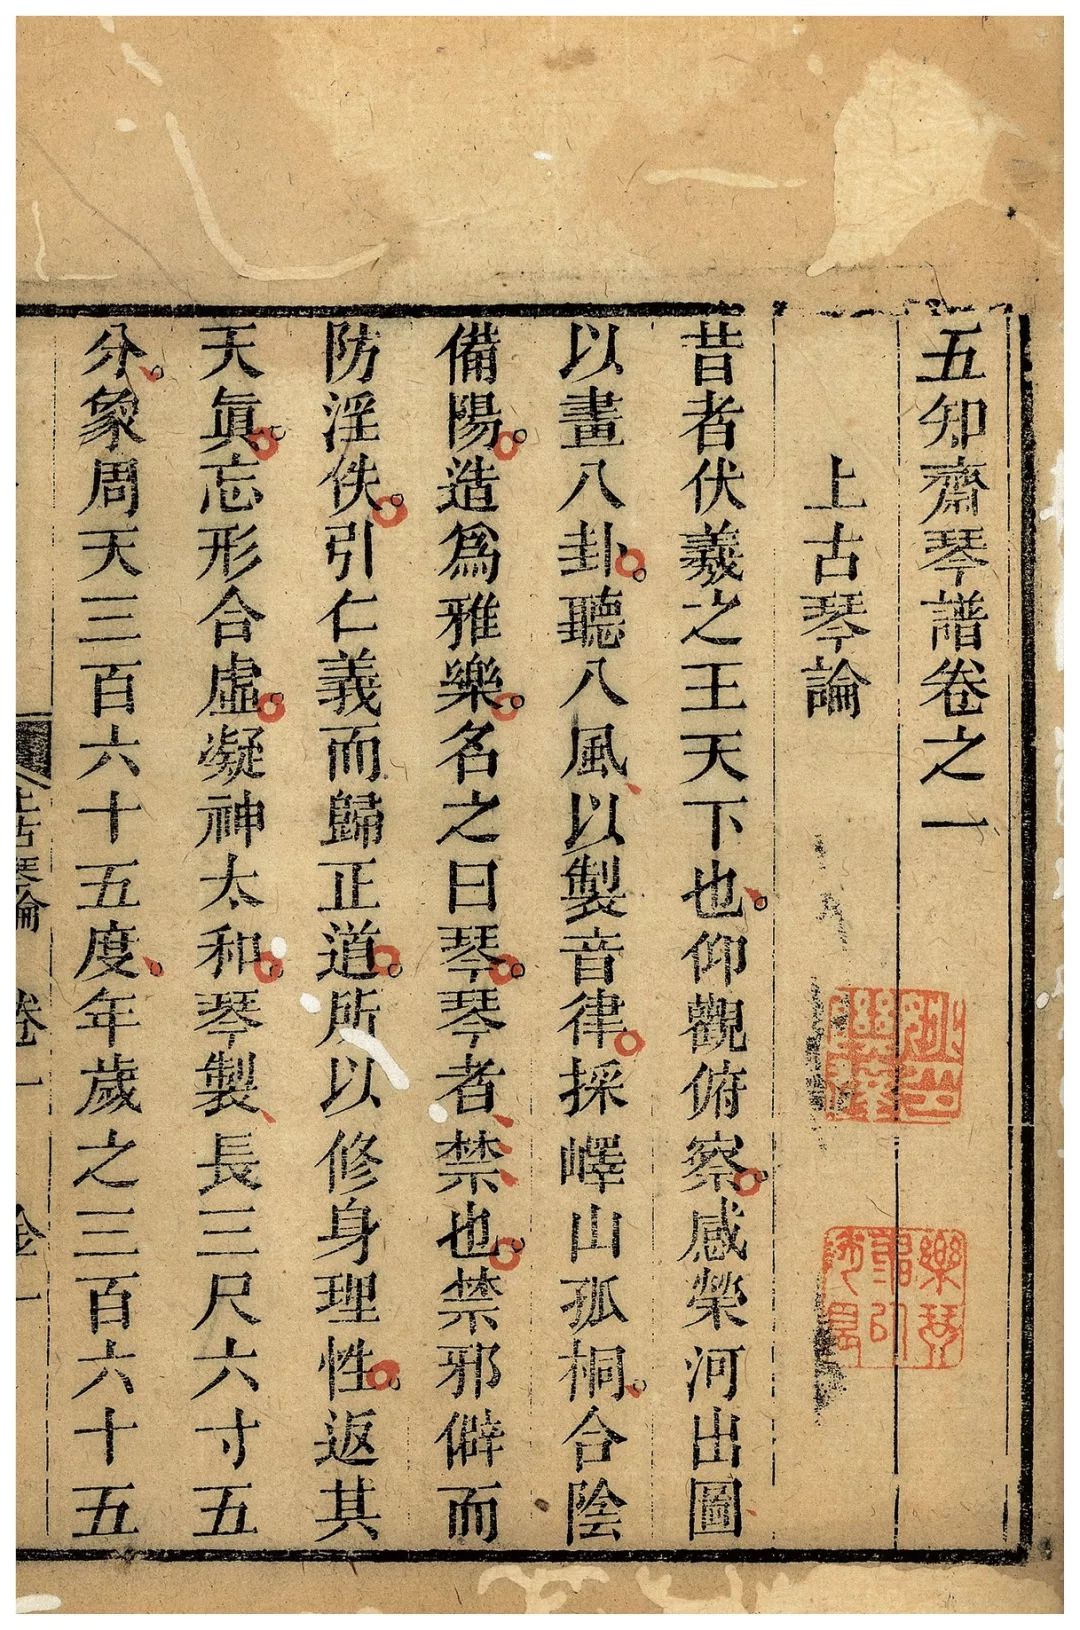 五知齋琴譜卷之一
上古琴論
昔者伏羲之王天下也。仰觀俯察。感榮河出圖
以畫八卦。聽八風以製音律。採嶧山孤桐。合陰
備陽。造爲雅樂。名之曰琴。琴者禁也。禁邪僻而
防淫佚。引仁義而歸正道。所以修身理性。返其
天眞。忘形合虛。凝神太和。琴製長三尺六寸五
分。象周天三百六十五度。年歲之三百六十五
上古琴論 卷一